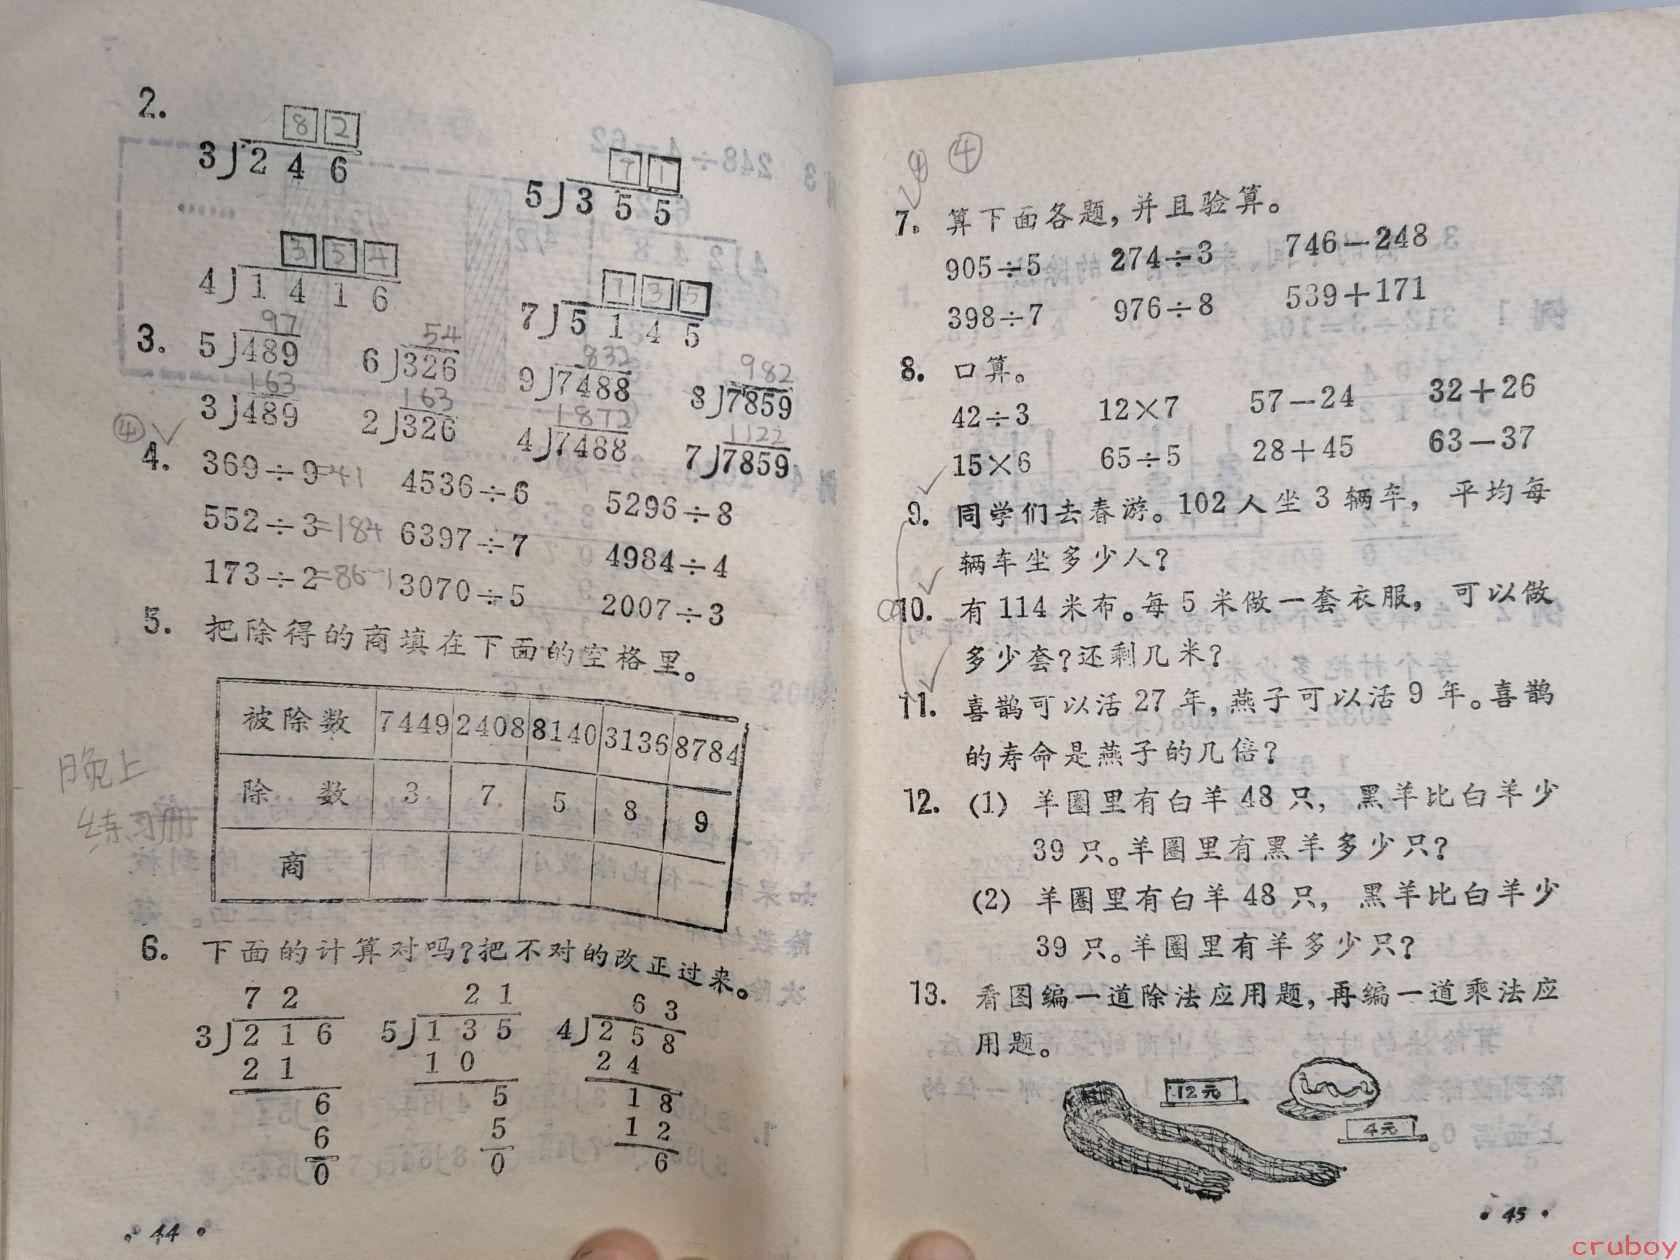 2.
8 2
3)2 4 6
7 1
5)3 5 5
3 5 4
4)1 4 1 6
7 3 5
7)5 1 4 5
3.
97
5)489
54
6)326
832
9)7488
982
8)7859
163
3)489
163
2)326
1872
4)7488
1122
7)7859
④
4. 369÷9=41 4536÷6 5296÷8
552÷3=184 6397÷7 4984÷4
173÷2=86…1 3070÷5 2007÷3
5. 把除得的商填在下面的空格里。
被除数 7449 2408 8140 3136 8784
除 数 3 7 5 8 9
商
晚上
练习册
6. 下面的计算对吗?把不对的改正过来。
7 2
3)2 1 6
2 1
6
6
0
2 1
5)1 3 5
1 0
5
5
0
6 3
4)2 5 8
2 4
1 8
1 2
6
·44·
④
7. 算下面各题,并且验算。
905÷5 274÷3 746－248
398÷7 976÷8 539＋171
8. 口算。
42÷3 12×7 57－24 32＋26
15×6 65÷5 28＋45 63－37
9. 同学们去春游。102人坐3辆车, 平均每
辆车坐多少人?
10. 有114米布。每5米做一套衣服, 可以做
多少套?还剩几米?
11. 喜鹊可以活27年,燕子可以活9年。喜鹊
的寿命是燕子的几倍?
12. (1) 羊圈里有白羊48只, 黑羊比白羊少
39只。羊圈里有黑羊多少只?
(2) 羊圈里有白羊48只, 黑羊比白羊少
39只。羊圈里有羊多少只?
13. 看图编一道除法应用题,再编一道乘法应
用题。
12元
4元
·45·
cruboy